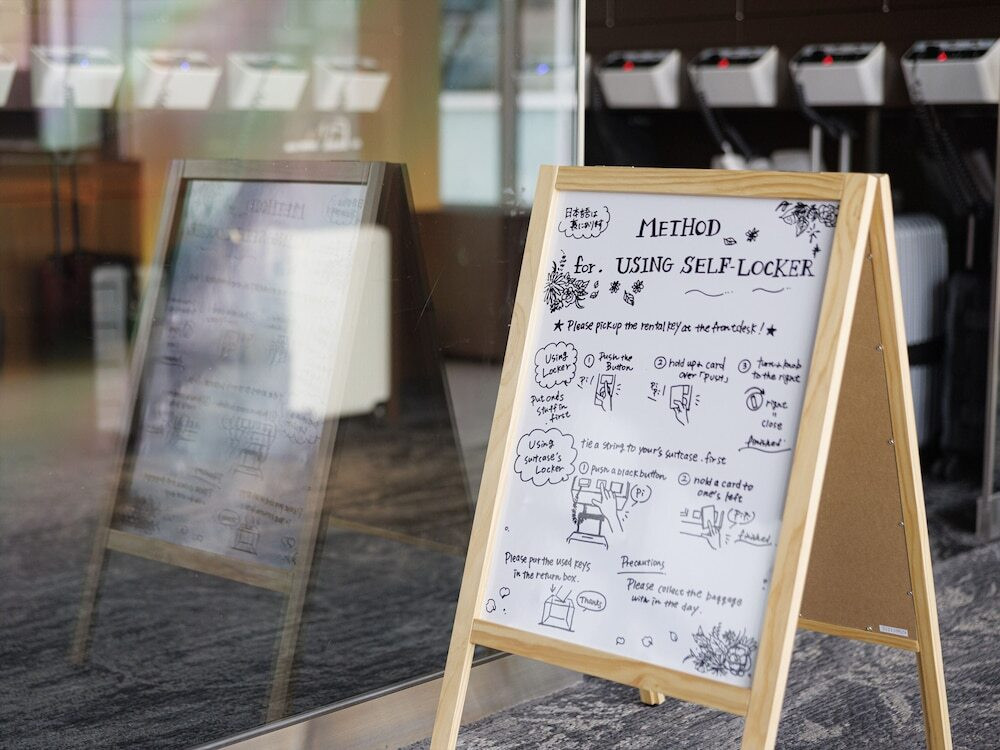 日本語は
裏にあります
METHOD
for. USING SELF-LOCKER
★ Please pick up the rental key at the frontdesk! ★
Using Locker
put on ds stuff in first
① Push the Button
Pi!
② hold up a card over「push」
Pi Pi!
③ turn a knob to the right
right = close
finished.
Using suitcase's Locker
tie a string to your's suitcase. first
① push a black button
Pi
② hold a card to one's left
finished.
Please put the used keys
in the return box.
Thanks
Precautions
Please collect the baggage
with in the day.